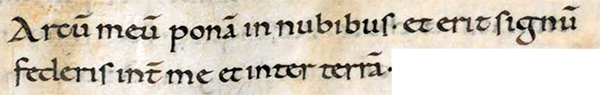 Arcū meū ponā in nubibus· et erit signū
federis int̄ me et inter terrā·